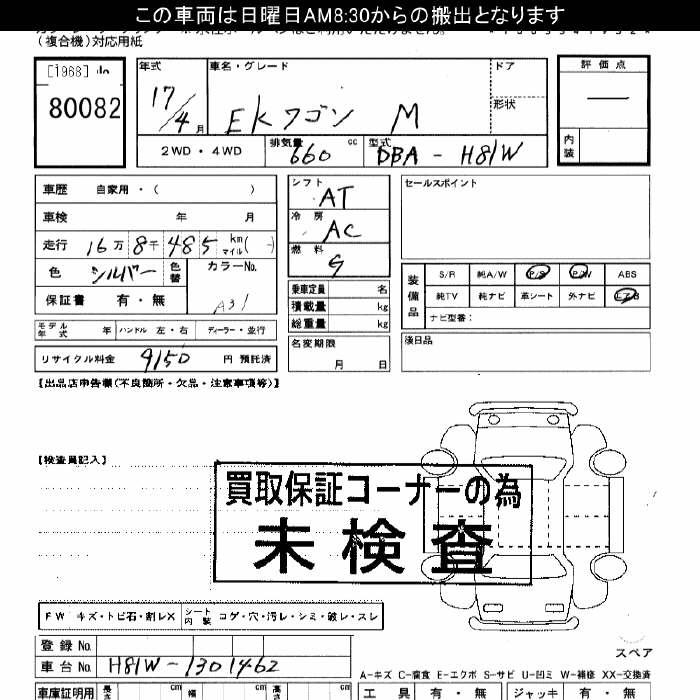 この車両は日曜日AM8:30からの搬出となります
(複合機)対応用紙
[1968]
80082
年式
17/4月
車名・グレード
EKワゴン M
ドア
形状
評価点
—
内装
2WD・4WD
排気量 660 cc
型式 DBA-H81W
車歴 自家用・( )
車検 年 月
走行 16万8千485 km マイル( )
色 シルバー 色替
カラーNo. A31
保証書 有・無
モデル年式 年 ハンドル 左・右 ディーラー・並行
リサイクル料金 9150 円 預託済
シフト AT
冷房 AC
燃料 G
乗車定員 名
積載量 kg
総重量 kg
名変期限 月 日
セールスポイント
装備品
S/R 純A/W P/S P/W ABS
純TV 純ナビ 革シート 外ナビ エアB
ナビ型番:
後日品
【出品店申告欄(不良箇所・欠品・注意事項等)】
【検査員記入】
買取保証コーナーの為
未検査
FW キズ・トビ石・割レX シート内装 コゲ・穴・汚レ・シミ・破レ・スレ
登録No.
車台No. H81W-1301462
スペア
A-キズ C-腐食 E-エクボ S-サビ U-凹ミ W-補修 XX-交換済
車庫証明用 長さ cm 幅 cm 高さ cm
工具 有・無 ジャッキ 有・無